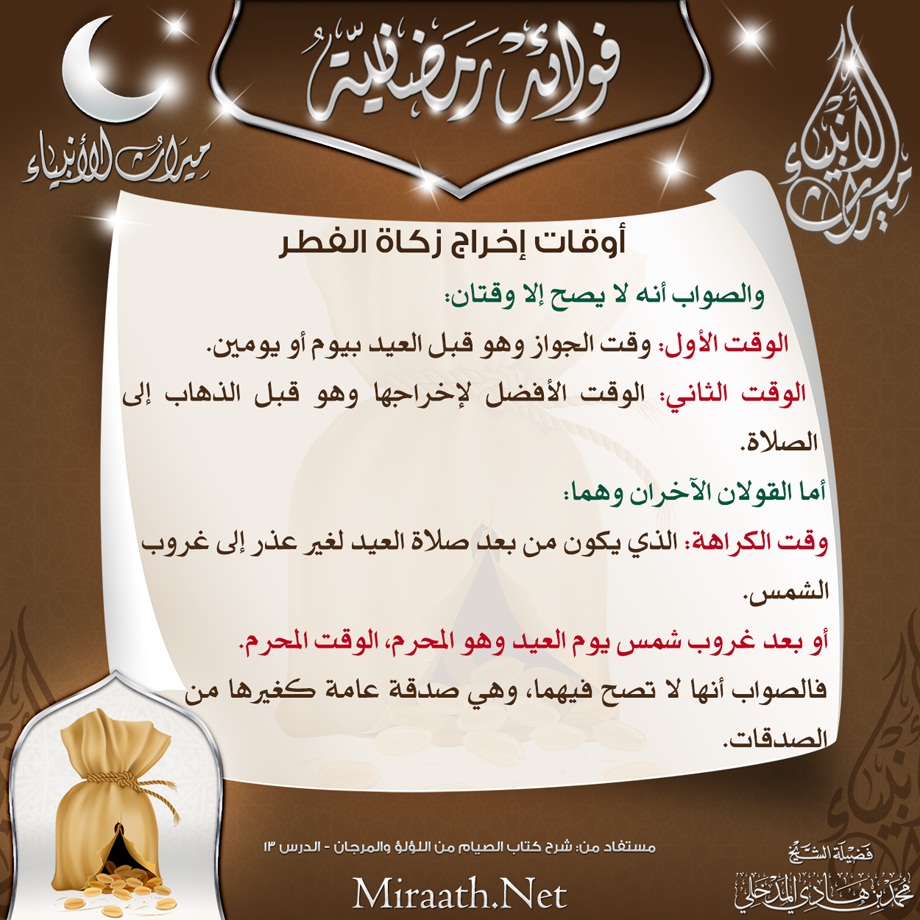 فوائد رمضانية
ميراث الأنبياء
ميراث الأنبياء
أوقات إخراج زكاة الفطر
والصواب أنه لا يصح إلا وقتان:
الوقت الأول: وقت الجواز وهو قبل العيد بيوم أو يومين.
الوقت الثاني: الوقت الأفضل لإخراجها وهو قبل الذهاب إلى
الصلاة.
أما القولان الآخران وهما:
وقت الكراهة: الذي يكون من بعد صلاة العيد لغير عذر إلى غروب
الشمس.
أو بعد غروب شمس يوم العيد وهو المحرم، الوقت المحرم.
فالصواب أنها لا تصح فيهما، وهي صدقة عامة كغيرها من
الصدقات.
مستفاد من: شرح كتاب الصيام من اللؤلؤ والمرجان - الدرس ١٣
Miraath.Net
فضيلة الشيخ
محمد بن هادي المدخلي